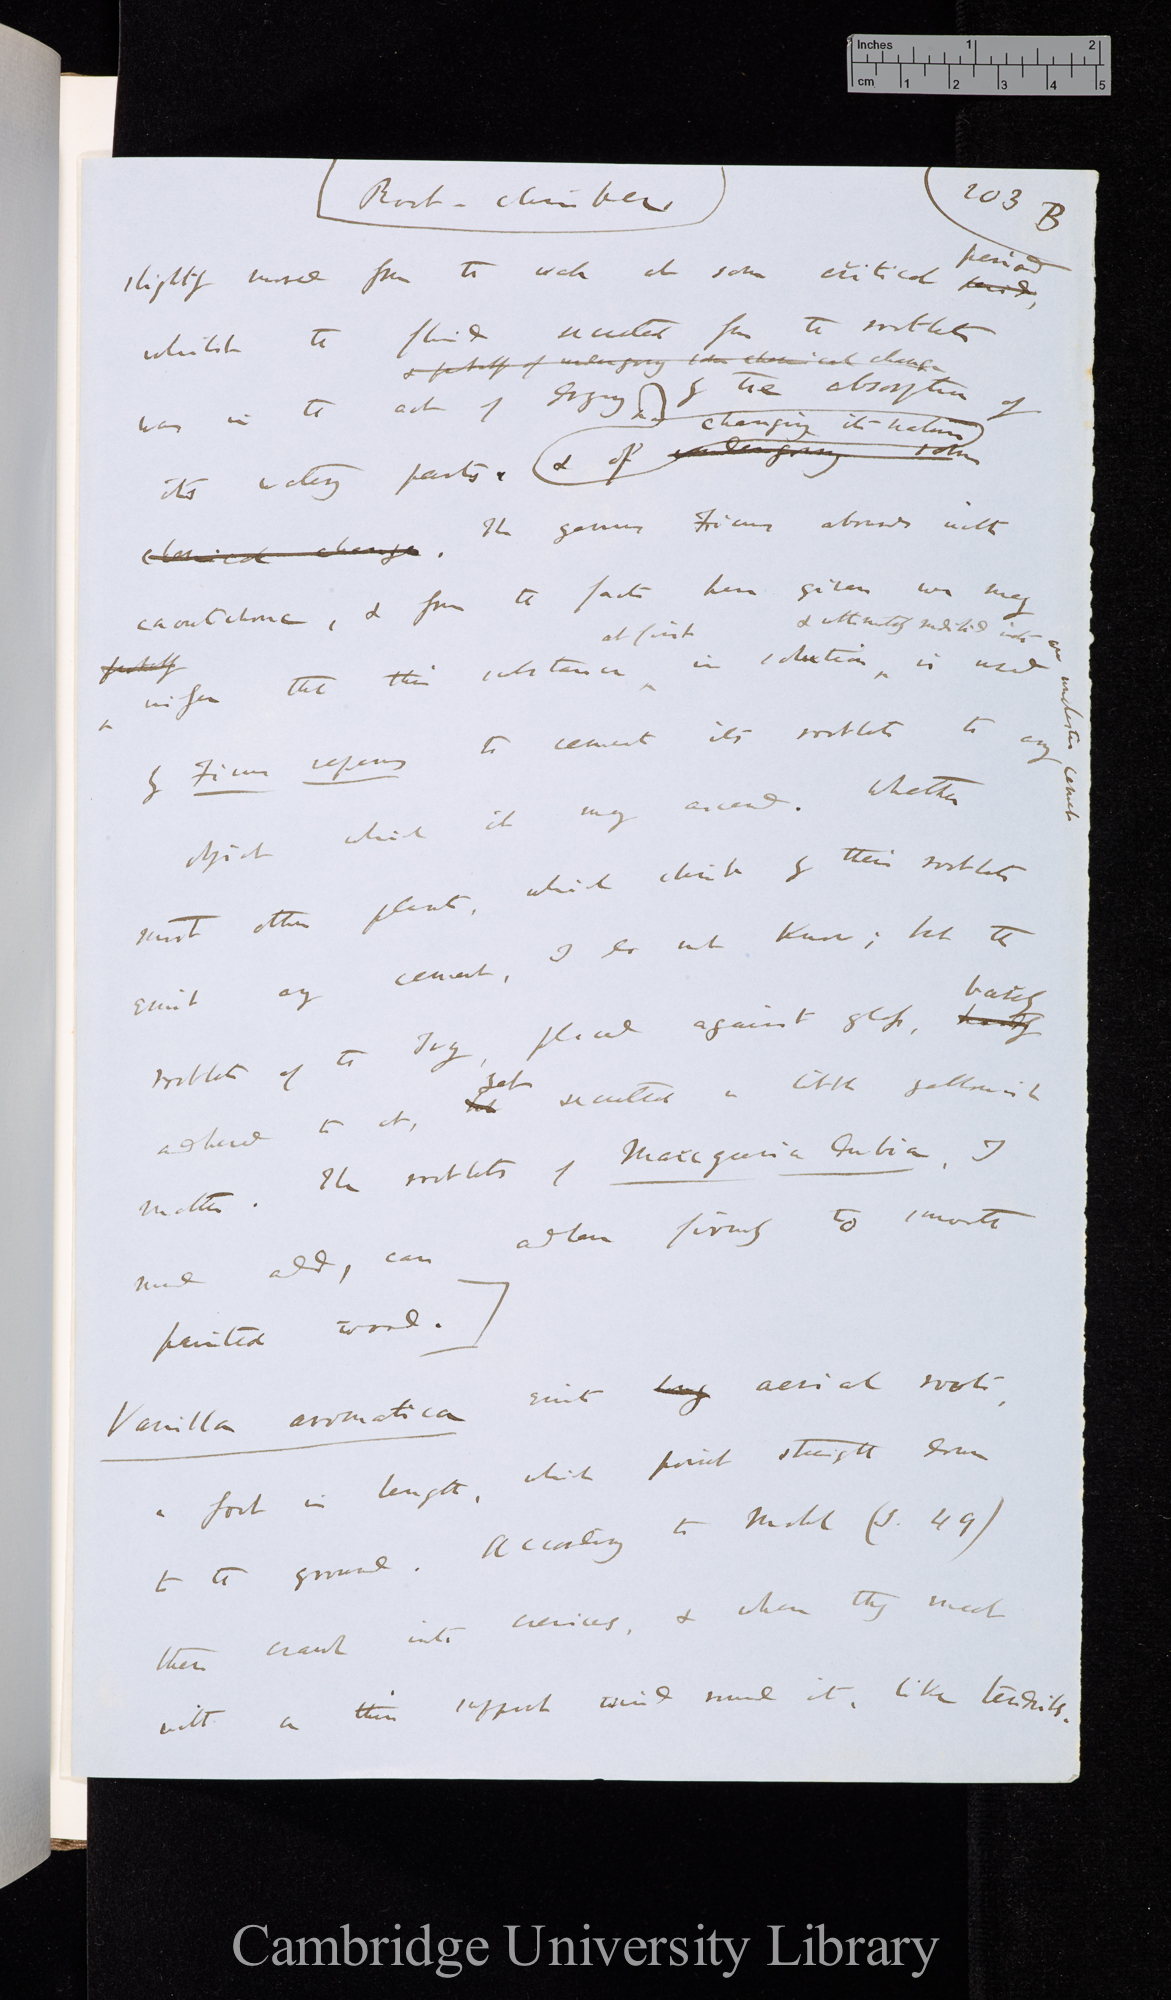 Inches 1 2
cm 1 2 3 4 5
Root-climbers
203 B
slightly moved from the wall at some critical period
period,
whilst the fluid secreted from the rootlets
& probably of undergoing some chemical change
was in the act of drying by the absorption of
changing its nature
its watery parts. & of undergoing some
chemical change. The genus Ficus abounds with
caoutchouc, & from the facts here given we may
at first & ultimately modified into an
probably infer that this substance in solution is used
cement
by Ficus repens to cement its rootlets to any
object which it may ascend. Whether
most other plants, which climb by their rootlets
emit any cement, I do not know; but the
rootlets of the Ivy, placed against glass, barely
adhered to it, yet secreted a little yellowish
matter. The rootlets of Marcgravia dubia, I
may add, can adhere firmly to smooth
painted wood.
Vanilla aromatica emits long aerial roots,
a foot in length, which point straight down
to the ground. According to Mohl (S. 49)
these crawl into crevices, & when they meet
with a thin support wind round it, like tendrils.
Cambridge University Library